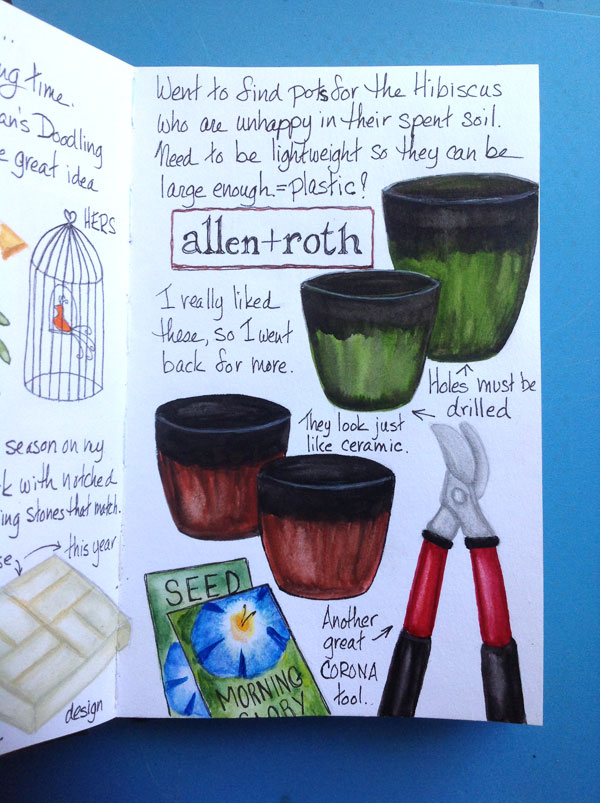 ...
time.
Doodling
great idea
HERS
season on my
with notched
Stones that match.
this year
design
Went to find pots for the Hibiscus
who are unhappy in their spent soil.
Need to be lightweight so they can be
large enough = plastic?
allen+roth
I really liked
these, so I went
back for more.
Holes must be
drilled
They look just
like ceramic.
SEED
MORNING
GLORY
Another
great
CORONA
tool.